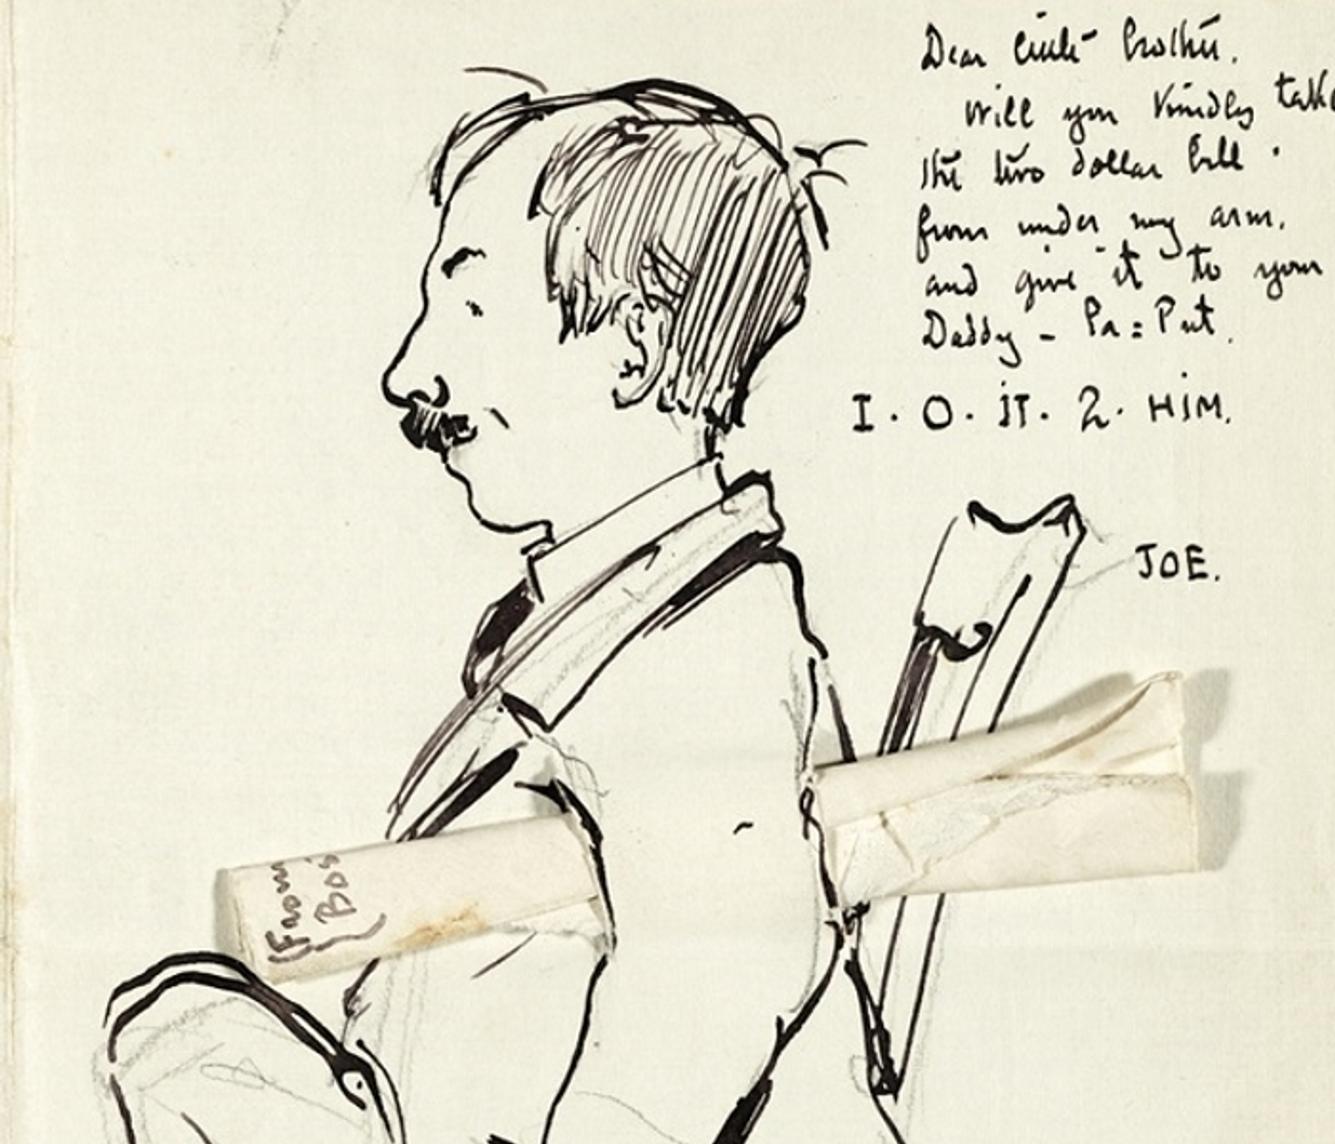 Dear little brother.
Will you kindly take
the two dollar bill.
from under my arm.
and give it to your
Daddy - Pa = Put.
I. O. iT. 2. HiM.
JOE.
(From
Bo's)